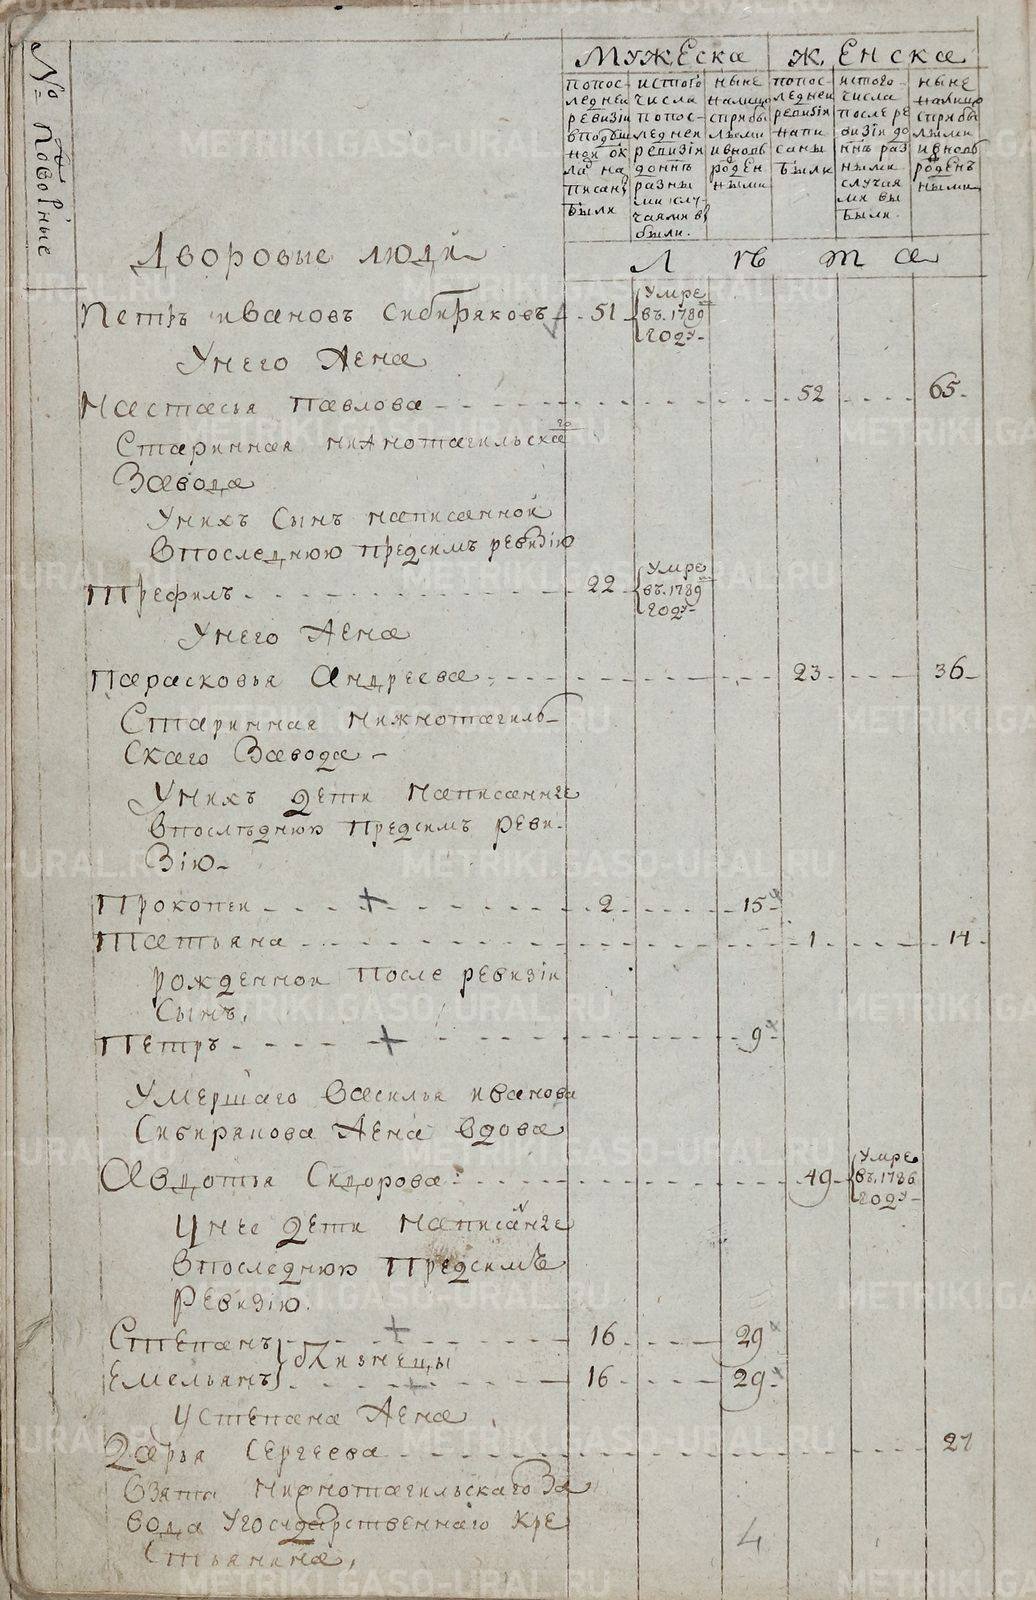 № Дворные
Мужеска
Женска
попос-
ледней
ревизіи
вподуш
ной ок
ла на
писан
были
истого
числа
попос-
ледней
ревизіи
доннѣ
разны
ми слу-
чаями в
были.
ныне
налицо
спрябы
лыми
ивновь
рожден
ными
попос-
ледней
ревизіи
напи
саны
были
истого-
числа
после ре
визіи до
ннѣ раз
ными
случая
ми вы
были.
ныне
налицо
спрябы
лыми
ивновь
рожден
ными
Дворовые люди
Л ѣ т а
Петръ ивановъ Сибиряковъ 51 Умре въ 1789 году
Унего Жена
Настасья Павлова 52 65
Старинная нижнотагильскаго
Завода
Унихъ Сынъ написанной
Впоследнюю предсимъ ревизію
Трефилъ 22 Умре въ 1789 году
Унего Жена
Парасковья Андреева 23 36
Старинная нижнотагиль
Скаго Завода
Унихъ дети написанные
Впослѣднюю предсимъ реви-
Зію
Прокопеи 2 15
Татьяна 1 14
рожденной После ревизіи
Сынъ,
Петръ 9
Умершаго Василья иванова
Сибирякова Жена вдова
Авдотья Сидорова 49 Умре въ 1786 году
Унее дети написанные
Впоследнюю Предсимъ
Ревизію.
Степанъ 16 29
близнецы
Емельянъ 16 29
Устепана Жена
Дарья Сергеева 27
Взята нижнотагильскаго За
вода Угосударственнаго Кре
Стьянина,
4
METRIKI.GASO-URAL.RU